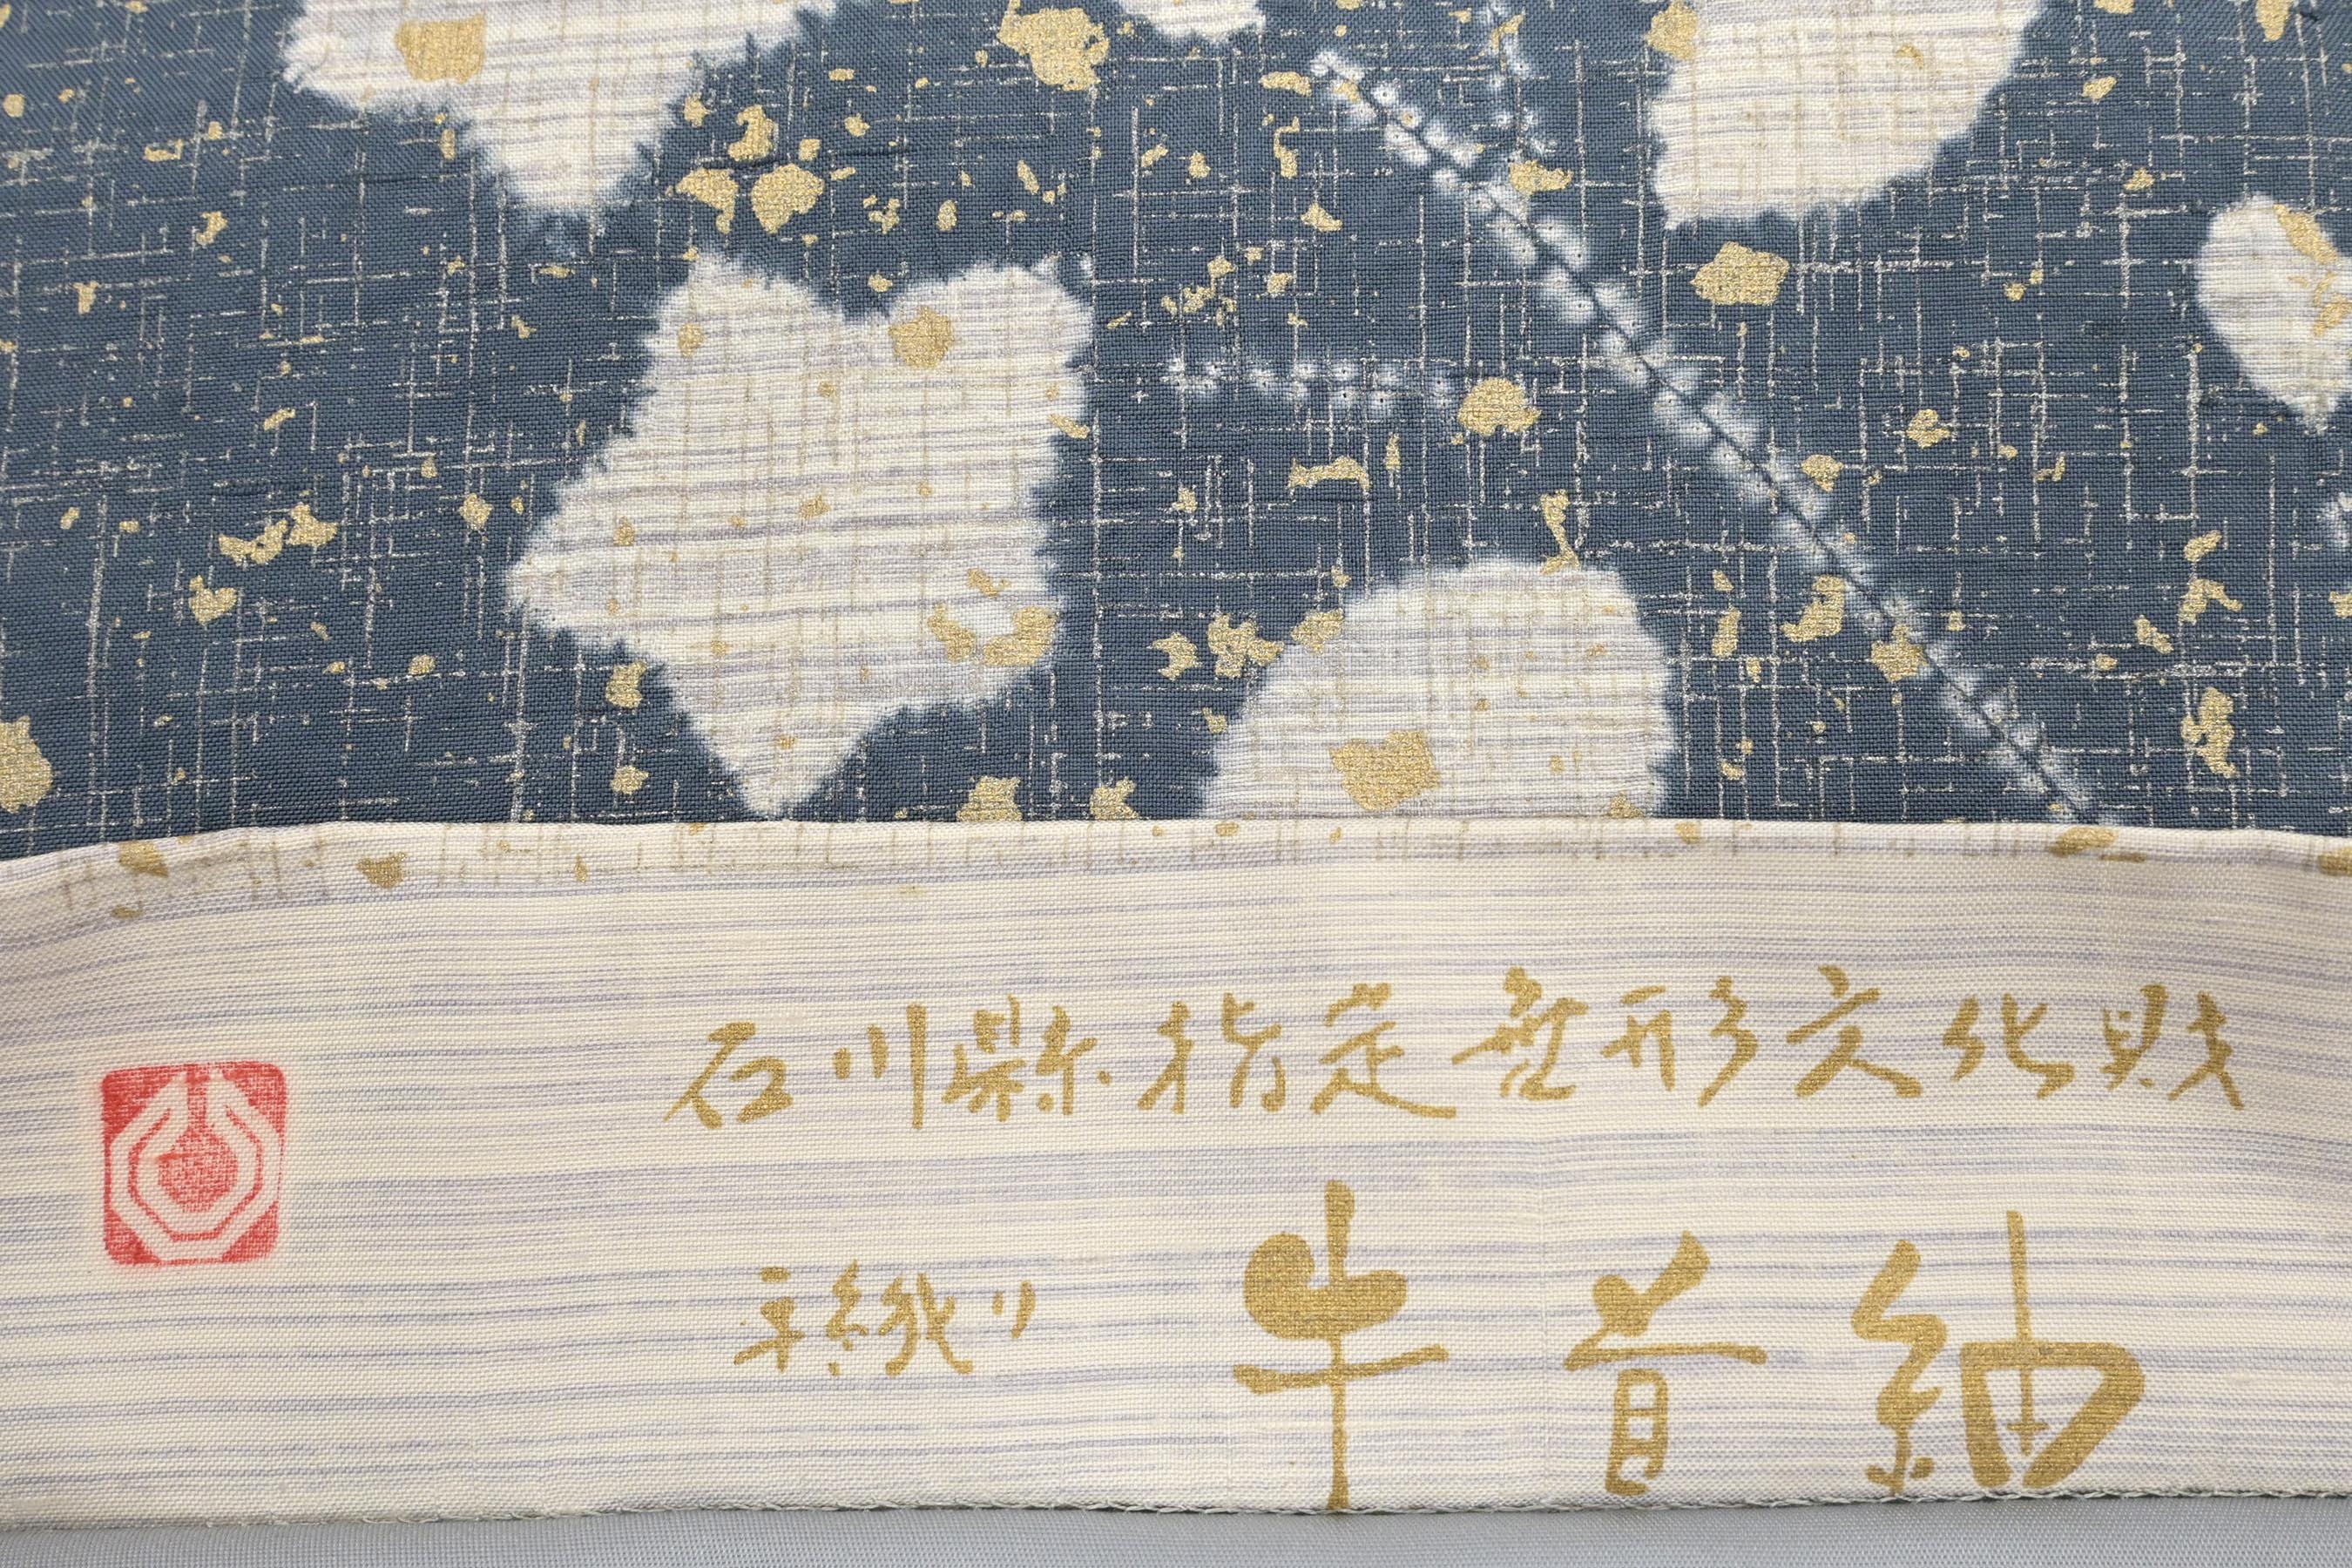 石川縣指定無形文化財
手織り 牛首紬